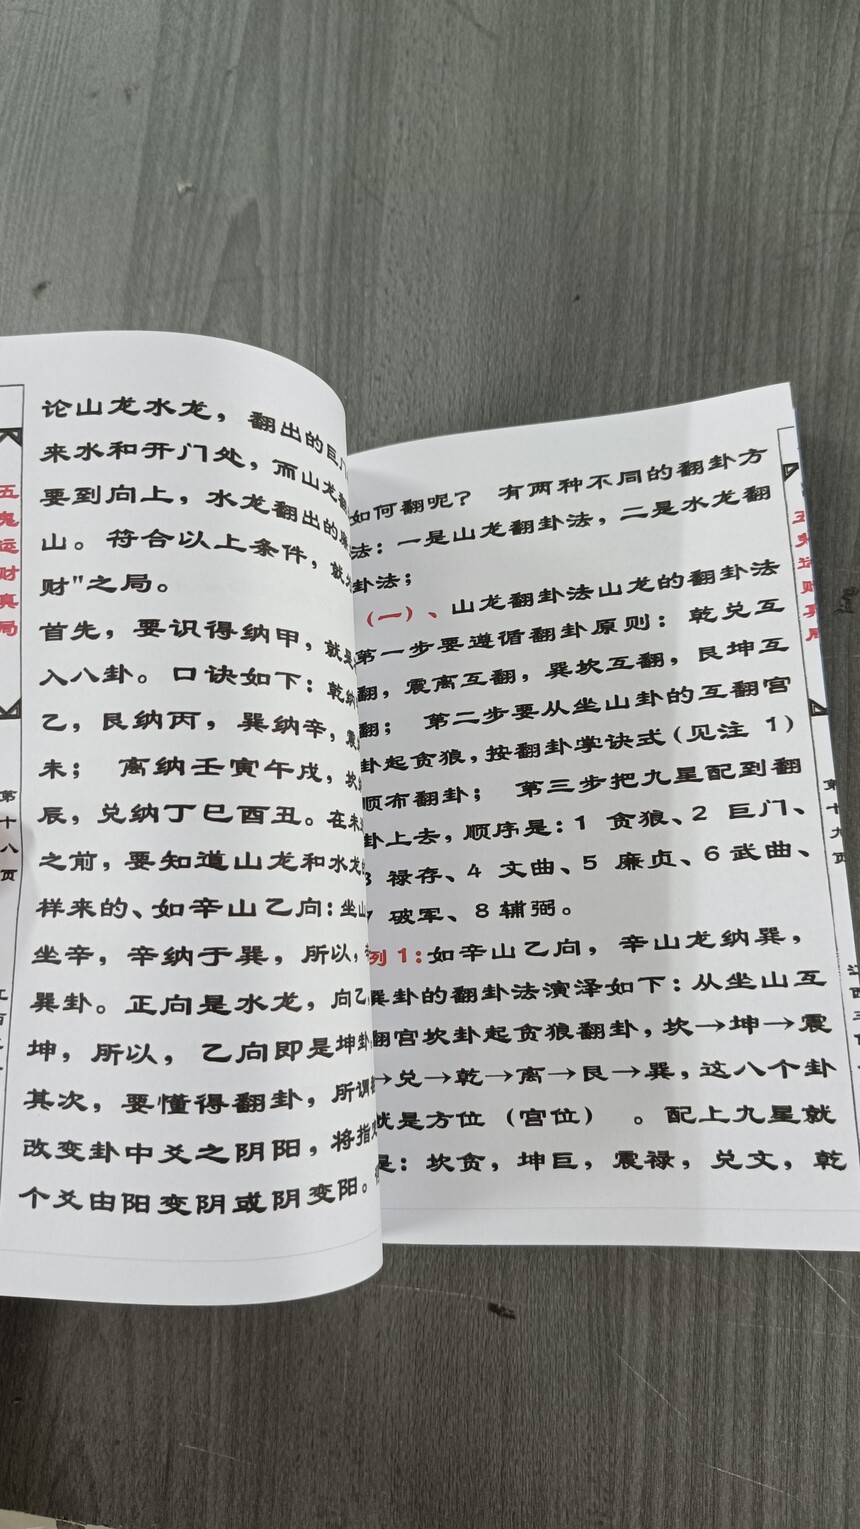 论山龙水龙，翻出的巨门
来水和开门处，而山龙
要到向上，水龙翻出的
山。符合以上条件，就
财"之局。
首先，要识得纳甲，就是
入八卦。口诀如下：乾纳
乙，艮纳丙，巽纳辛，
未； 离纳壬寅午戌，
辰，兑纳丁巳酉丑。在
之前，要知道山龙和水龙
样来的、如辛山乙向：坐山
坐辛，辛纳于巽，所以，
巽卦。正向是水龙，向乙
坤，所以， 乙向即是坤卦
其次，要懂得翻卦，所谓
改变卦中爻之阴阳，将指
个爻由阳变阴或阴变阳。
五鬼运财真局
第十八页
如何翻呢？ 有两种不同的翻卦方
法：一是山龙翻卦法，二是水龙翻
卦法；
（一）、山龙翻卦法山龙的翻卦法
第一步要遵循翻卦原则：乾兑互
翻，震离互翻，巽坎互翻，艮坤互
翻； 第二步要从坐山卦的互翻宫
卦起贪狼，按翻卦掌诀式（见注 1）
顺布翻卦； 第三步把九星配到翻
卦上去，顺序是：1 贪狼、2 巨门、
3 禄存、4 文曲、5 廉贞、6 武曲、
7 破军、8 辅弼。
列 1：如辛山乙向，辛山龙纳巽，
巽卦的翻卦法演泽如下：从坐山互
翻宫坎卦起贪狼翻卦，坎→坤→震
→兑→乾→离→艮→巽，这八个卦
就是方位（宫位） 。配上九星就
是：坎贪，坤巨，震禄，兑文，乾
五鬼运财真局
第十九页